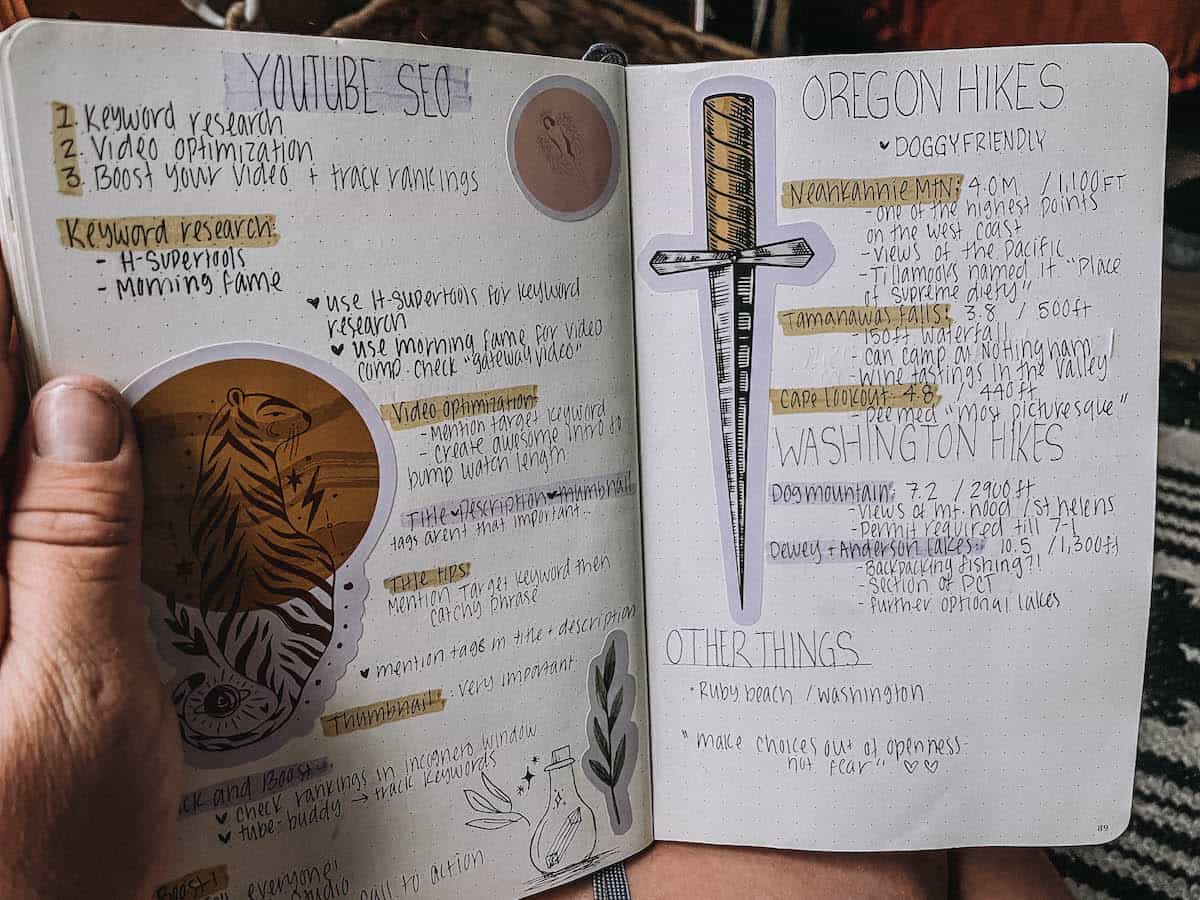 YOUTUBE SEO
1. Keyword research
2. Video optimization
3. Boost your video + track rankings
Keyword research:
- H-supertools
- Morning fame
♥ use H-supertools for keyword
research
♥ use morning fame for video
comp. check "gateway video"
Video optimization:
- Mention target keyword
- create awesome intro to
bump watch length
Title ♥ Description ♥ thumbnail
tags arent that important...
Title tips:
Mention Target keyword then
catchy phrase
♥ mention tags in title + description
Thumbnail: very important
ck and Boost:
♥ check rankings in incognero window
♥ tube-buddy → track keywords
Boost!
everyone!
studio
call to action
OREGON HIKES
♥ DOGGYFRIENDLY
Neahkahnie Mtn: 4.0M / 1,100FT
- one of the highest points
on the west coast
- views of the pacific
- Tillamooks named it "Place
of supreme diety"
Tamanawas Falls: 3.8 / 500ft
- 150ft waterfall
- can camp at Nottingham
- wine tastings in the valley
Cape lookout: 4.8 / 440ft
- Deemed "most picturesque"
WASHINGTON HIKES
Dog mountain: 7.2 / 2900ft
- views of mt. hood / St helens
- Permit required till 7-1
Dewey + Anderson lakes: 10.5 / 1,300ft
- Backpacking fishing?!
- Section of PCT
- Further optional lakes
OTHER THINGS
• Ruby beach / washington
"make choices out of openness
not fear" ♡♡
89